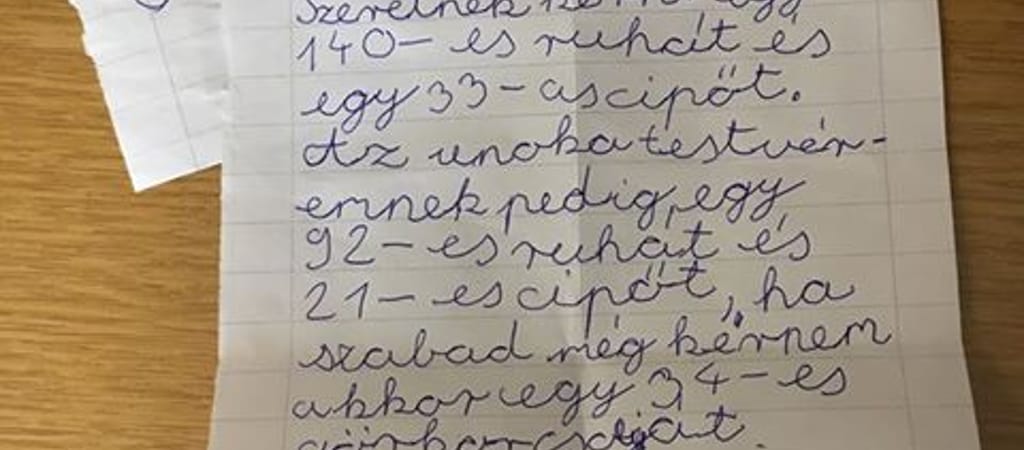 szeretnék kérni egy
140-es ruhát és
egy 33-as cipőt.
Az unokatestvér-
emnek pedig, egy
92-es ruhát és
21-es cipőt, ha
szabad még kérnem
akkor egy 34-es